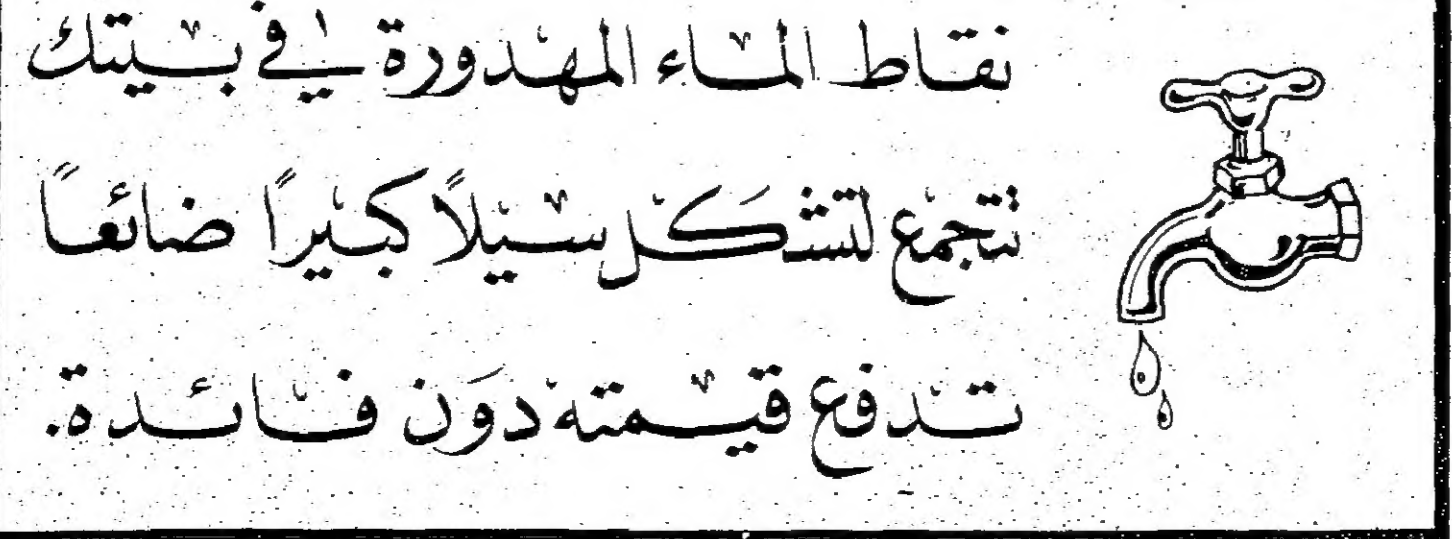 نقاط الماء المهدورة في بيتك
تتجمع لتشكل سيلاً كبيراً ضائعاً
تدفع قيمته دون فائدة.